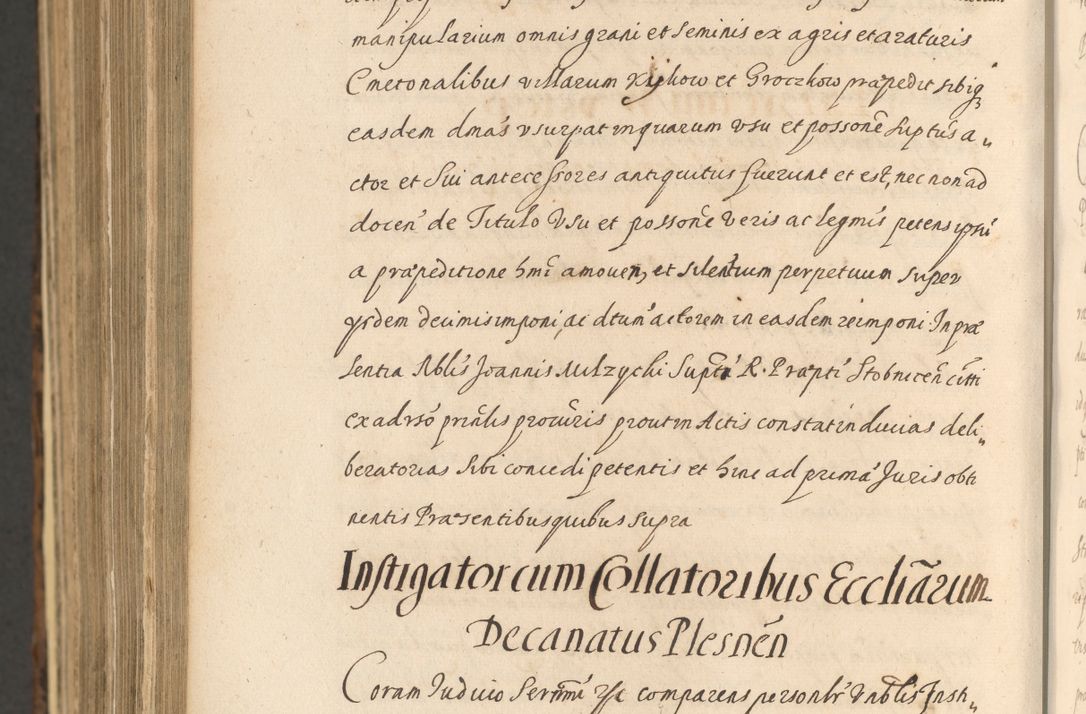 manipularium omnis grani et seminis ex agris et araturis
Cmetonalibus villarum Kijkow et Groczkow præpedit sibiq
easdem dmas usurpat in quarum usu et possone suptus a„
ctor et sui antecessores antiquitus fuerunt et est, nec non ad
docen de Titulo Usu et possone veris ac legmis petens ipsu
a præpeditione hmi amoven, et silentium perpetuum super
ysdem decimis imponi, ac dtum actorem in easdem reimponi. In præ
sentia Nblis Joannis Milzycki Supti R. Præpti Stobnicen citti
ex adrso prinlis procuris prout in Actis constat inducias deli„
beratorias sibi concedi petentis et hinc ad prima Juris obti
nentis Præsentibus quibus supra
Instigator cum Collatoribus Eccliarum
Decanatus Plesnen
Coram Judicio Sermi &c comparens personlr Nblis Insti„